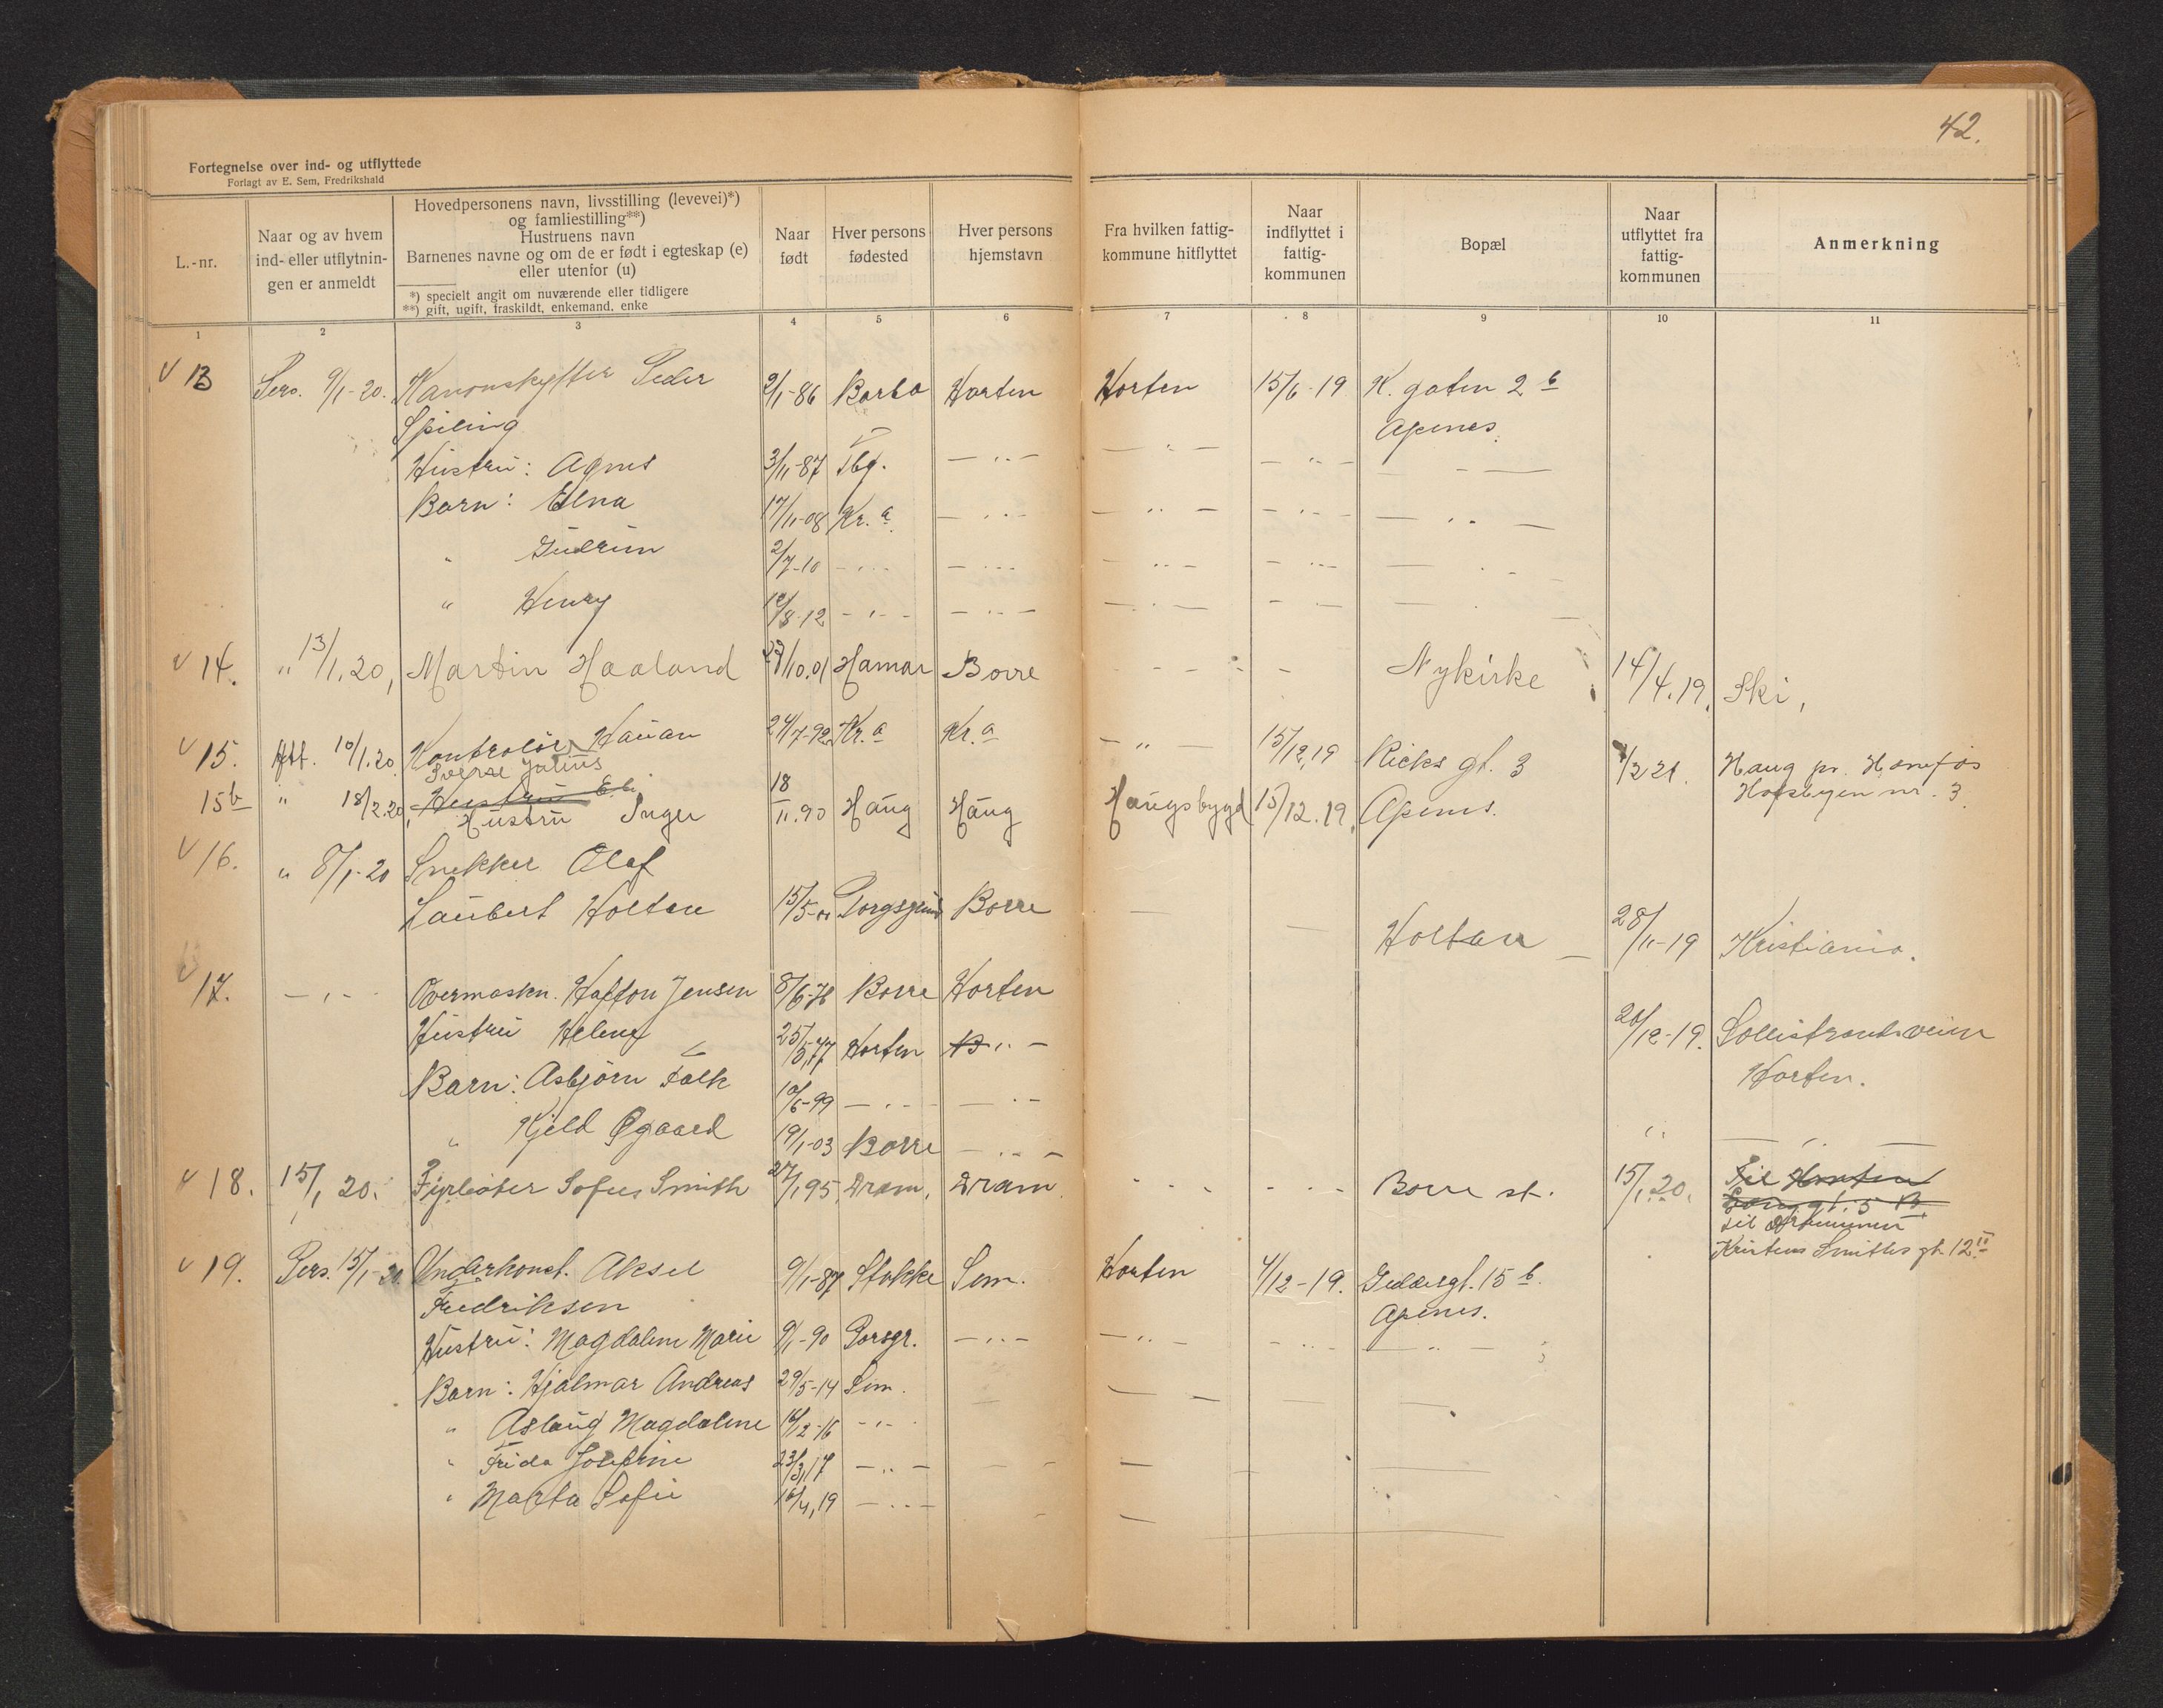 42.
Fortegnelse over ind- og utflyttede
Forlagt av E. Sem, Fredrikshald
L.-nr.
Naar og av hvem
ind- eller utflytnin-
gen er anmeldt
Hovedpersonens navn, livsstilling (levevei)*)
og famliestilling**)
Hustruens navn
Barnenes navne og om de er født i egteskap (e)
eller utenfor (u)
*) specielt angit om nuværende eller tidligere
**) gift, ugift, fraskildt, enkemand, enke
Naar
født
Hver persons
fødested
Hver persons
hjemstavn
Fra hvilken fattig-
kommune hitflyttet
Naar
indflyttet i
fattig-
kommunen
Bopæl
Naar
utflyttet fra
fattig-
kommunen
Anmerkning
1 2 3 4 5 6 7 8 9 10 11
13 Pers. 9/1-20. Kanonskytter Peder 2/1-86 Barbo Horten Horten 15/6-19 K. gaten 2 b
Spiling Apenes.
Hustru: Agnes 3/11-87 Tbg. — „ — — „ — — „ — — „ —
Barn: Elna 17/11-08 Kr.a — „ — — „ — — „ — — „ —
„ Gudrun 2/7-10 — „ — — „ — — „ — — „ — — „ —
„ Henry /8-12 — „ — — „ — — „ — — „ —
14. „ 13/1.20, Martin Haaland /10.01 Hamar Borre Nykirke 14/4.19, Ski,
15. Att. 10/1.20. Kontrolør Hauan 24/7-92 Kr.a Kr.a — „ — 15/12.19 Ricks gt. 3 /2 21. Haug pr. Hønefos
Sverre Julius Hofsbyen nr. 3.
15b „ 18/2.20, Hustru Inger 18/11.90 Haug Haug Haugsbygd 15/12.19. Apenes.
16. „ 8/1-20 Snekker Olaf
Laubert Holtan 15/5-01 Porsgrund Borre — — Holtan — 28/11-19 Kristiania.
17. — „ — Overmaskn. Hafton Jensen 8/6-76 Borre Horten
Hustru Helene 25/5,77 Horten — „ — 20/12-19. Sollistrandsveien
Horten.
Barn: Asbjørn Falk 10/6-99 — „ — — „ —
„ Kjeld Øgaard 19/1-03 Borre — „ — „ — „ —
18. 15/1 20. Fyrbøter Sofus Smith 27/1 95, Dram. Dram. - - - - - - Borre st. 15/1.20. Til Horten
gt. 5 B.
til Drammen
Kristens Smiths gt. 12 II
19. Pers. 15/1-20. Underkonst. Aksel 9/1-87 Stokke Sem. Horten 4/12-19. Geddesgt. 15 b.
Fredriksen Apenes.
Hustru: Magdalene Marie 9/1-90 Porsgr. — „ — — „ — — „ — — „ —
Barn: Hjalmar Andreas 29/5-14 Sem.
„ Aslaug Magdalene /12-16 — „ —
„ Frida Josefine 23/3,17 — „ —
„ Marta Sofie 16/4,19 — „ —